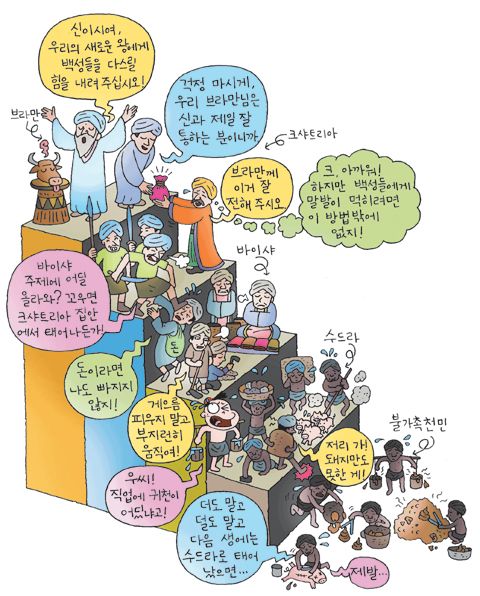 신이시여,
우리의 새로운 왕에게
백성들을 다스릴
힘을 내려 주십시오!
브라만
걱정 마시게,
우리 브라만님은
신과 제일 잘
통하는 분이니까.
크샤트리아
브라만께
이거 잘
전해 주시오.
크, 아까워!
하지만 백성들에게
말발이 먹히려면
이 방법밖에
없지!
바이샤
바이샤
주제에 어딜
올라와? 꼬우면
크샤트리아 집안
에서 태어나든가!
돈
수드라
돈이라면
나도 빠지지
않지!
게으름
피우지 말고
부지런히
움직여!
불가촉천민
저리 가!
돼지만도
못한 게!
우씨!
직업에 귀천이
어딨냐고!
더도 말고
덜도 말고
다음 생에는
수드라로 태어
났으면…
제발…